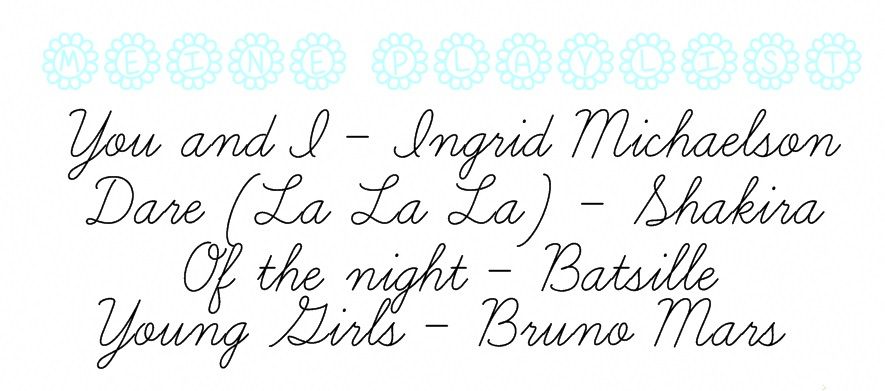 MEINE PLAYLIST
You and I - Ingrid Michaelson
Dare (La La La) - Shakira
Of the night - Batsille
Young Girls - Bruno Mars